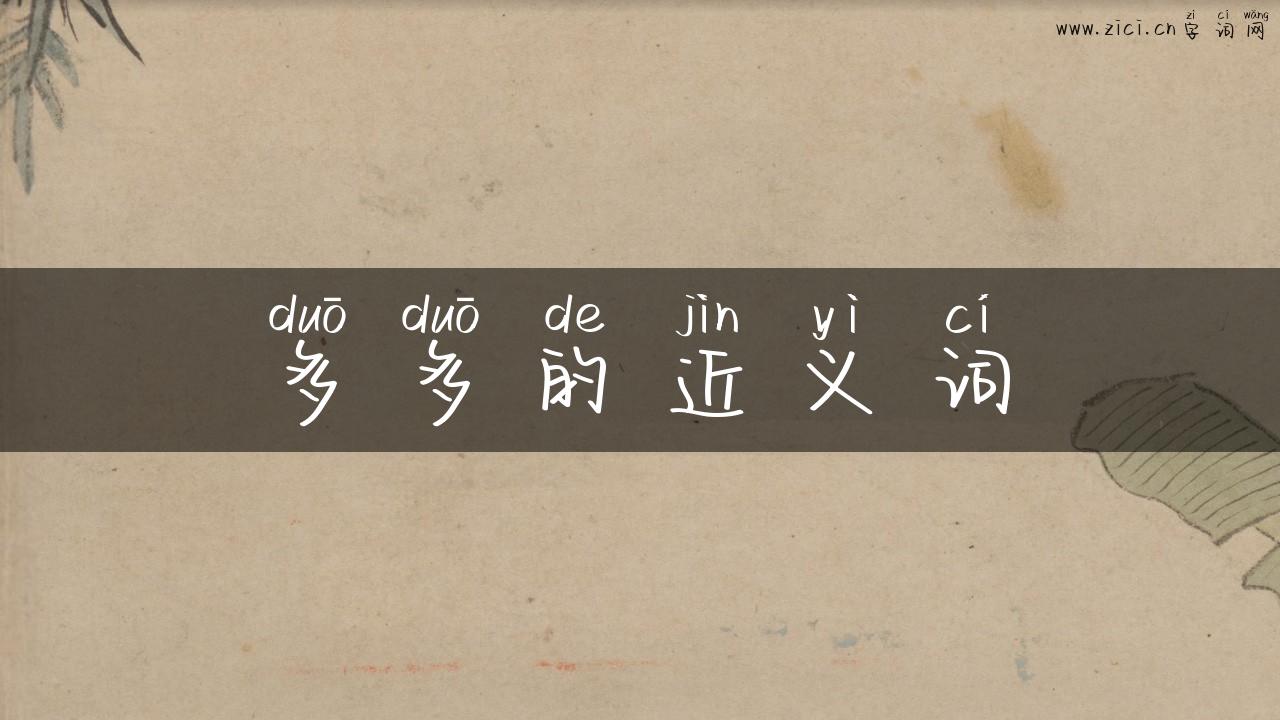 zì cí wǎng
www.zici.cn 字词网
duō duō de jìn yì cí
多多的近义词